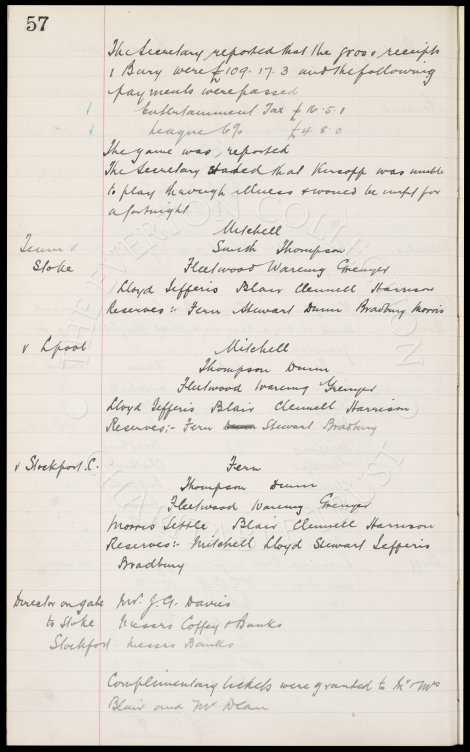 57
The Secretary reported that the gross receipts
v Bury were £109. 17. 3 and the following
payments were passed
Entertainment Tax £16. 5. 1
League 6% £4. 8. 0
The game was reported
The Secretary stated that Kirsopp was unable
to play through illness & would be unfit for
a fortnight
Mitchell
Team v Smith Thompson
Stoke Fleetwood Wareing Grenyer
Lloyd Jefferis Blair Clennell Harrison
Reserves:- Fern Stewart Dunn Bradbury Morris
v Lpool Mitchell
Thompson Dunn
Fleetwood Wareing Grenyer
Lloyd Jefferis Blair Clennell Harrison
Reserves:- Fern Stewart Bradbury
v Stockport C. Fern
Thompson Dunn
Fleetwood Wareing Grenyer
Morris Settle Blair Clennell Harrison
Reserves:- Mitchell Lloyd Stewart Jefferis
Bradbury
Director on gate Mr. J. G. Davies
to Stoke Messrs Coffey & Banks
Stockport Messrs Banks
Complimentary tickets were granted to Mr & Mrs
Blair and Mr Dean
THE EVERTON COLLECTION
CHARITABLE TRUST